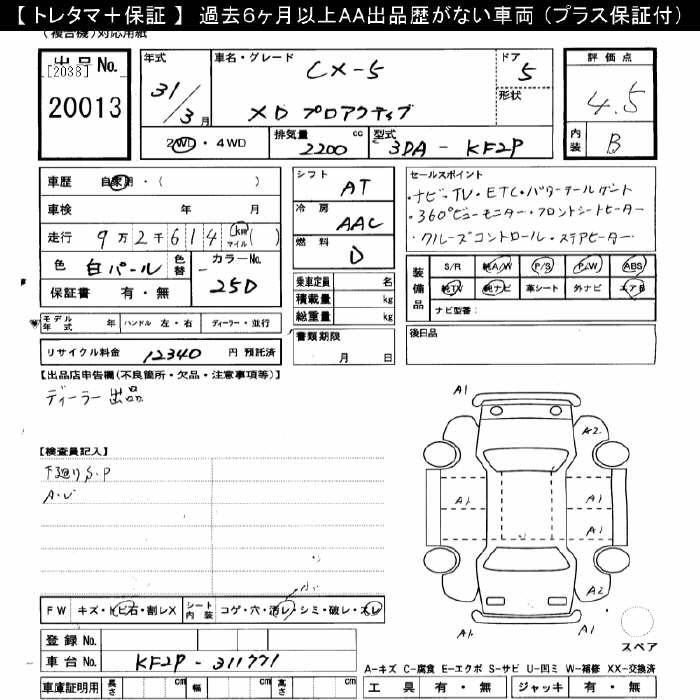 【 トレタマ＋保証 】 過去６ヶ月以上AA出品歴がない車両 (プラス保証付)
(複合機)対応用紙
出品 No.
[2038]
20013
年式 31/3月
車名・グレード CX-5
XD プロアクティブ
ドア 5
形状
評価点 4.5
内装 B
2WD ・ 4WD
排気量 2200 cc
型式 3DA - KF2P
車歴 自家用・( )
車検 年 月
走行 9万2千614 km マイル ( )
色 白パール 色替
カラーNo. 25D
保証書 有・無
シフト AT
冷房 AAC
燃料 D
乗車定員 名
積載量 kg
総重量 kg
書類期限 月 日
セールスポイント
・ナビ・TV・ETC・パワーテールゲート
・360°ビューモニター・フロントシートヒーター
・クルーズコントロール・ステアヒーター
装備品 S/R 純A/W P/S P/W ABS
純TV 純ナビ 革シート 外ナビ エアB
ナビ型番：
後日品
モデル年式 年 ハンドル 左・右 ディーラー・並行
リサイクル料金 12340 円 預託済
【出品店申告欄(不良箇所・欠品・注意事項等)】
ディーラー出品
【検査員記入】
下廻りS.P
A.U
A1
A2
A1
A1
A1
A2
A1
A1
FW キズ・トビ石・割レX
シート内装 コゲ・穴・汚レ・シミ・破レ・スレ
スペア
登録 No.
車台 No. KF2P - 311771
車庫証明用 長さ cm 幅 cm 高さ cm
A－キズ C－腐食 E－エクボ S－サビ U－凹ミ W－補修 XX－交換済
工具 有・無 ジャッキ 有・無